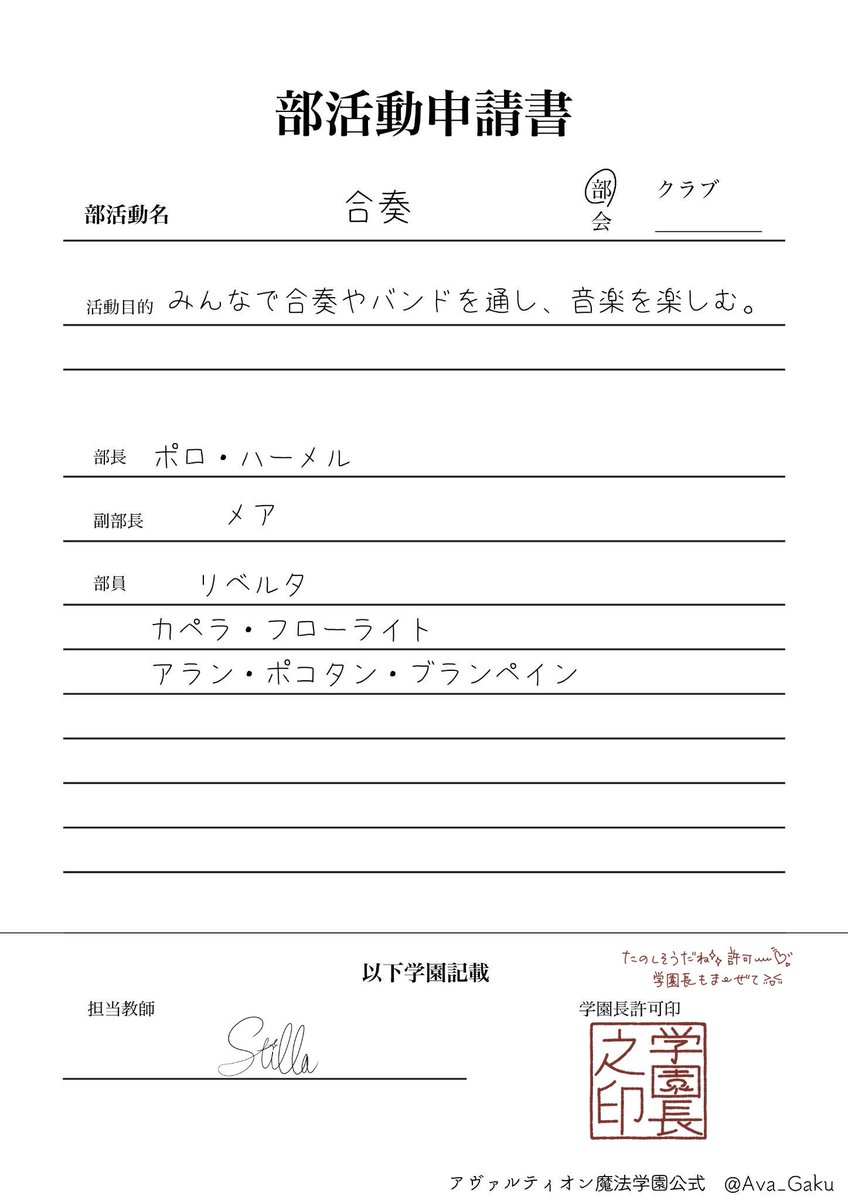 部活動申請書
部活動名 合奏 部 クラブ
会
活動目的 みんなで合奏やバンドを通し、音楽を楽しむ。
部長 ポロ・ハーメル
副部長 メア
部員 リベルタ
カペラ・フローライト
アラン・ポコタン・ブランペイン
以下学園記載
たのしそうだね 許可
学園長もまーぜて
担当教師 Stilla
学園長許可印
学園長之印
アヴァルティオン魔法学園公式 @Ava_Gaku